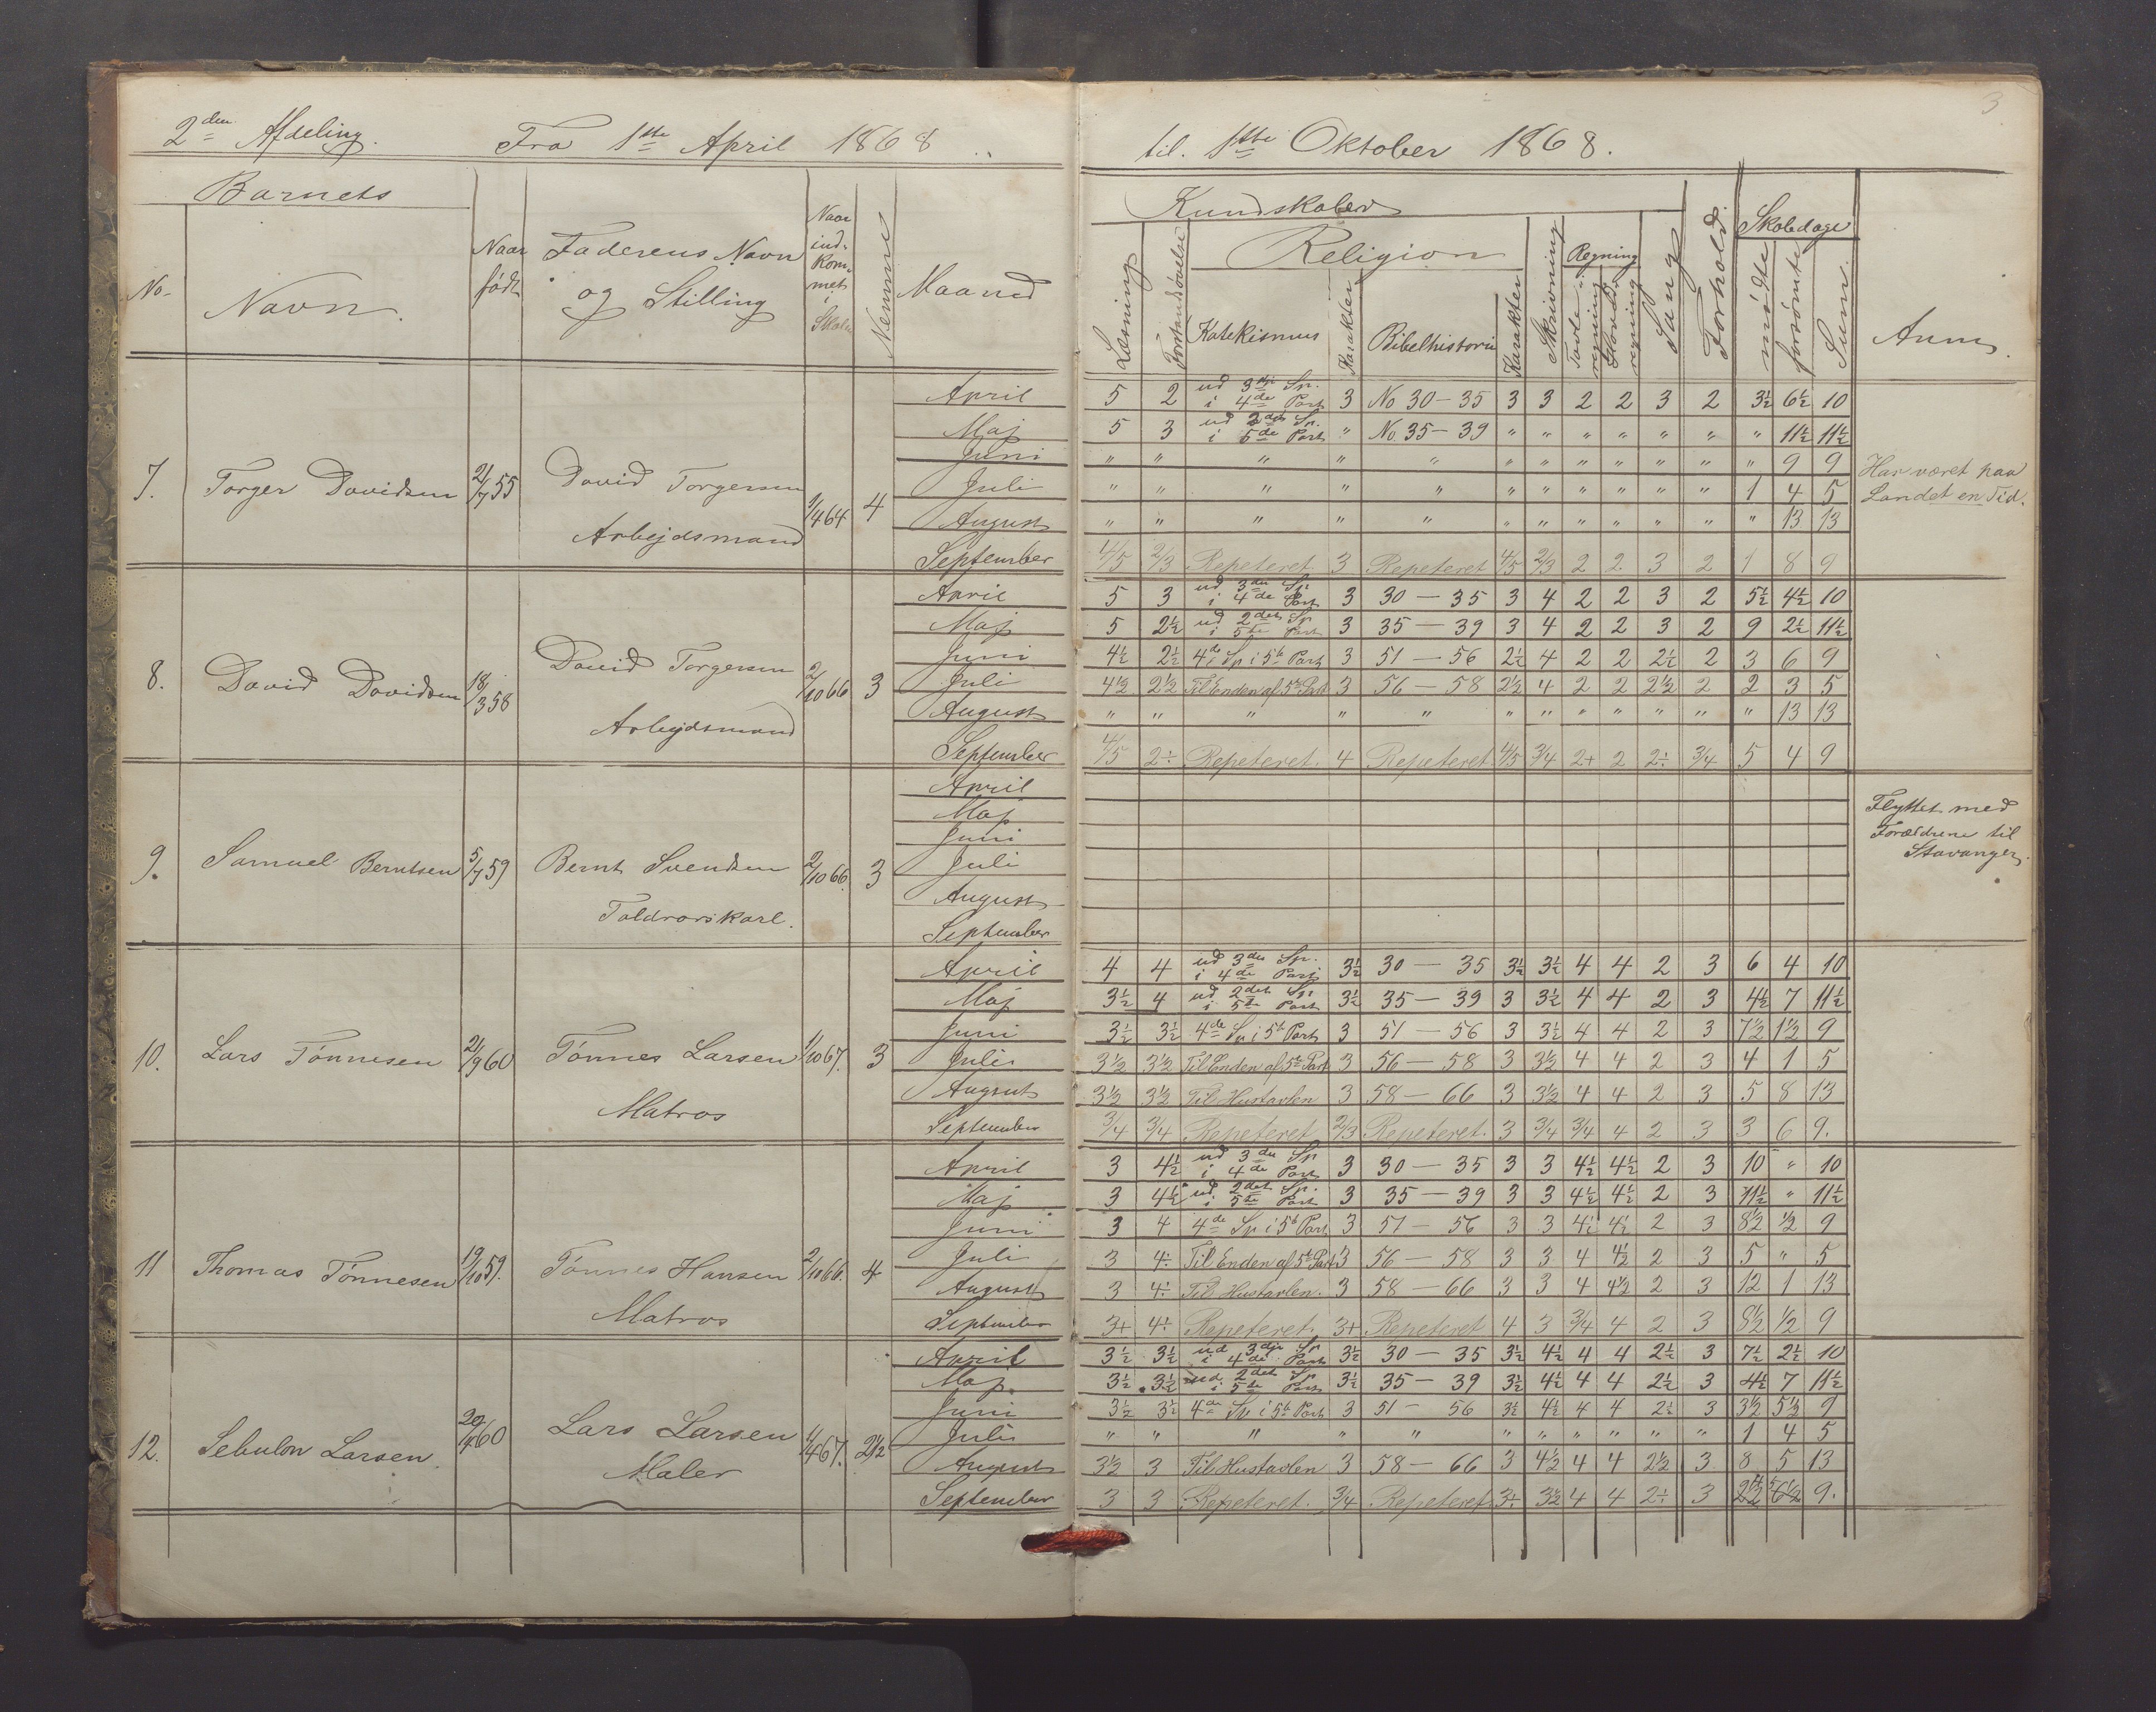 3
2den Afdeling. Fra 1ste April 1868 til 1ste Oktober 1868.
Barnets
No. Navn. Naar født Faderens Navn og Stilling Naar ind-kom-met i Skolen Nemme Maaned
Kundskaber Forhold Skoledage Anm.
Læsning Forstandsøvelse Religion Skrivning Regning Sang mødte forsømte Sum.
Katekismus Karakter Bibelhistorie Karakter Tavle-regning Hoved-regning
7. Torger Davidsen 2/7 55 David Torgersen Arbejdsmand 1/4 64 4
April 5 2 ud 3die Sp. i 4de Part 3 No 30-35 3 3 2 2 3 2 3½ 6½ 10
Maj 5 3 ud 2det Sp. i 5te Part " No. 35-39 " " " " " " " 11½ 11½
Juni " " " " " " " " " " " " 9 9
Juli " " " " " " " " " " " 1 4 5
August " " " " " " " " " " " " 13 13
September 4/5 2/3 Repeteret 3 Repeteret 4/5 2/3 2 2 3 2 1 8 9
Har været paa
Landet en Tid.
8. David Davidsen 18/3 58 David Torgersen Arbejdsmand 2/10 66 3
April 5 3 ud 3die Sp. i 4de Part 3 30-35 3 4 2 2 3 2 5½ 4½ 10
Maj 5 2½ ud 2det Sp i 5te Part 3 35-39 3 4 2 2 3 2 9 2½ 11½
Juni 4½ 2½ 4de Sp i 5te Part 3 51-56 2½ 4 2 2 2½ 2 3 6 9
Juli 4½ 2½ Til Enden af 5te Part 3 56-58 2½ 4 2 2 2½ 2 2 3 5
August " " " " " " " " " " " " 13 13
September 4/5 2÷ Repeteret. 4 Repeteret 4/5 3/4 2+ 2 2÷ 3/4 5 4 9
9. Samuel Berntsen 5/7 59 Bernt Svendsen Toldrorskarl. 2/10 66. 3
April
Maj
Juni
Juli
August
September
Flyttet med
Forældrene til
Stavanger.
10. Lars Tønnesen 2/9 60 Tønnes Larsen Matros 1/10 67. 3
April 4 4 ud 3die Sp. i 4de Part 3½ 30-35 3½ 3½ 4 4 2 3 6 4 10
Maj 3½ 4 ud 2det Sp i 5te Part 3½ 35-39 3 3½ 4 4 2 3 4½ 7 11½
Juni 3½ 3½ 4de Sp i 5te Part 3 51-56 3 3½ 4 4 2 3 7½ 1½ 9
Juli 3½ 3½ Til Enden af 5te Part 3 56-58 3 3½ 4 4 2 3 4 1 5
August 3½ 3½ Til Hustavlen 3 58-66 3 3½ 4 4 2 3 5 8 13
September 3/4 3/4 Repeteret 2/3 Repeteret. 3 3/4 3/4 4 2 3 3 6 9.
11 Thomas Tønnesen 19/10 59. Tønnes Hansen Matros 2/10 66. 4
April 3 4½ ud 3die Sp i 4de Part 3 30-35 3 3 4½ 4½ 2 3 10 " 10
Maj 3 4½ ud 2det Sp. i 5te Part 3 35-39 3 3 4½ 4½ 2 3 11½ " 11½
Juni 3 4 4de Sp i 5te Part 3 51-56 3 3 4½ 4½ 2 3 8½ ½ 9
Juli 3 4÷ Til Enden af 5te Part 3 56-58 3 3 4 4½ 2 3 5 " 5
August 3 4÷ Til Hustavlen. 3 58-66 3 3 4 4½ 2 3 12 1 13
September 3+ 4÷ Repeteret 3+ Repeteret 4 3 3/4 4 2 3 8½ ½ 9
12. Sebulon Larsen. Lars Larsen Maler 1/4 67. 2½
April 3½ 3½ ud 3die Sp i 4de Part 3½ 30-35 3½ 4½ 4 4 2½ 3 7½ 2½ 10
Maj. 3½ 3½ ud 2det Sp i 5te Part 3½ 35-39 3½ 4½ 4 4 2½ 3 4½ 7 11½
Juni 3½ 3½ 4de Sp i 5te Part 3 51-56 3½ 4½ 4 4 2½ 3 3½ 5½ 9
Juli " " " " " " " " " " " 1 4 5
August 3½ 3 Til Hustavlen 3 58-66 3 4½ 4 4 2½ 3 8 5 13
September 3 3 Repeteret. 3/4 Repeteret 3÷ 3½ 4 4 2÷ 3 9.